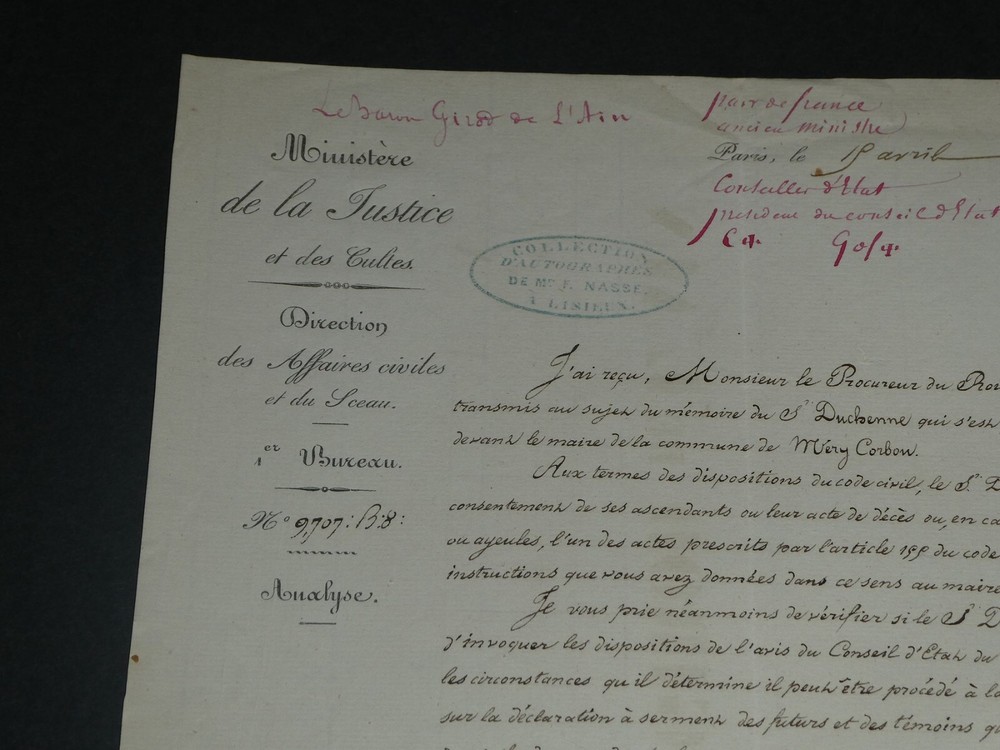 Le Baron Girod de L'Ain
pair de france
ancien ministre
Paris, le 15 avril
Conseiller d'Etat
president du conseil d'Etat
Ministère
de la Justice
et des Cultes.
COLLECTION
D'AUTOGRAPHES
DE Mr F. NASSE,
À LISIEUX.
Direction
des Affaires civiles
et du Sceau.
1er Bureau.
No 9,707: B:8:
Analyse.
J'ai reçu, Monsieur le Procureur du Roi
transmis au sujet du mémoire du Sr Duchenne qui s'est
devant le maire de la commune de Méry Corbon.
Aux termes des dispositions du code civil, le Sr D
consentement de ses ascendants ou leur acte de décès ou, en ca
ou ayeules, l'un des actes prescrits par l'article 155 du code
instructions que vous avez données dans ce sens au maire
Je vous prie néanmoins de vérifier si le Sr D
d'invoquer les dispositions de l'avis du Conseil d'Etat du
les circonstances qu'il détermine il peut être procédé à la
sur la déclaration à serment des futurs et des témoins qu